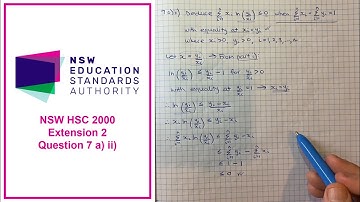 NSW
EDUCATION
STANDARDS
AUTHORITY
NSW HSC 2000
Extension 2
Question 7 a) ii)
7 a)ii) Deduce Σ xᵢ ln(yᵢ/xᵢ) ≤ 0 when Σ xᵢ = Σ yᵢ = 1
with equality at xᵢ = yᵢ
where xᵢ > 0, yᵢ > 0,
Let x = yᵢ/xᵢ → From part i)
ln(yᵢ/xᵢ) ≤ yᵢ/xᵢ - 1 for yᵢ/xᵢ > 0
with equality at yᵢ/xᵢ = 1 → xᵢ = yᵢ
∴ ln(yᵢ/xᵢ) ≤ yᵢ - xᵢ/xᵢ
∴ xᵢ ln(yᵢ/xᵢ) ≤ yᵢ - xᵢ
Σ xᵢ ln(yᵢ/xᵢ) ≤ Σ yᵢ - xᵢ
≤ Σ yᵢ - Σ xᵢ
≤ 1 - 1
≤ 0